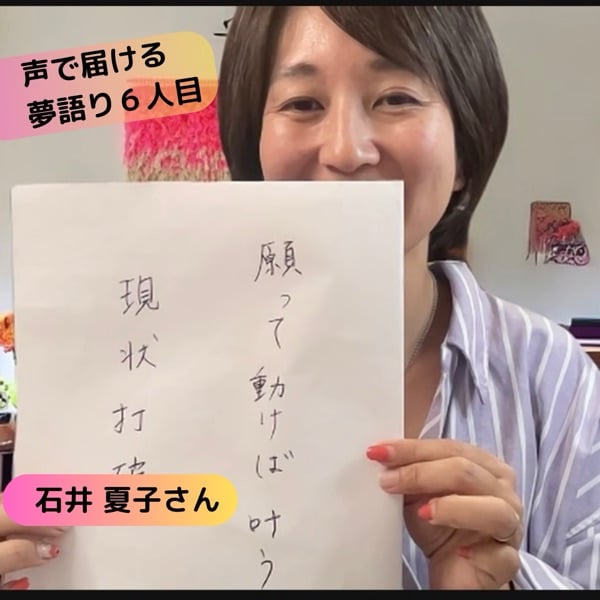 声で届ける
夢語り６人目
願って動けば叶う
現状打破
石井 夏子さん